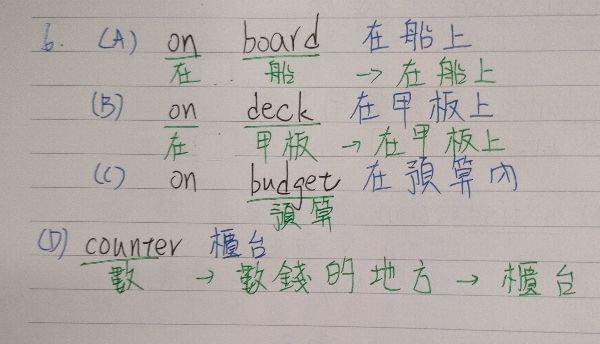 6. (A) on board 在船上
在 船 → 在船上
(B) on deck 在甲板上
在 甲板 → 在甲板上
(C) on budget 在預算內
預算
(D) counter 櫃台
數 → 數錢的地方 → 櫃台